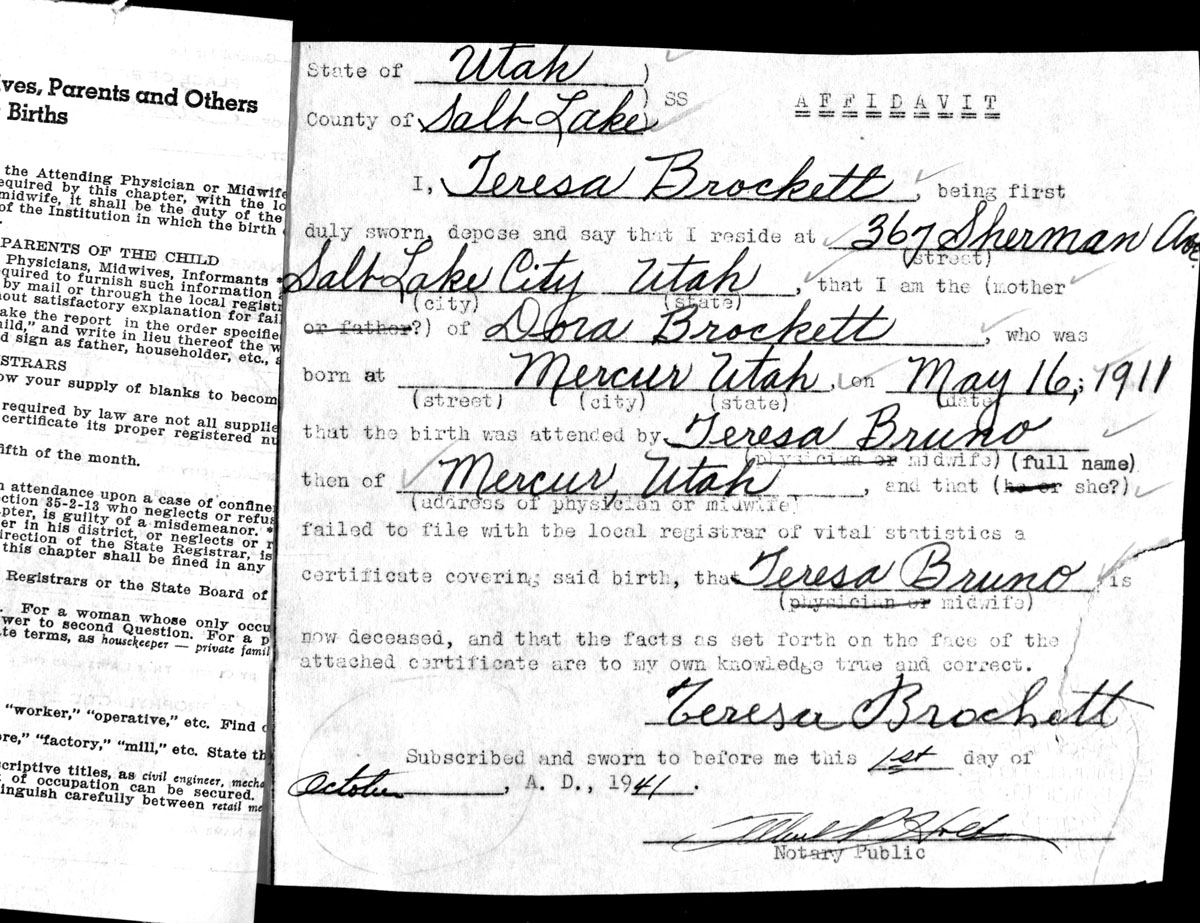 ives, Parents and Others
Births
the Attending Physician or Midwife
equired by this chapter, with the lo
midwife, it shall be the duty of the
of the Institution in which the birth
PARENTS OF THE CHILD
Physicians, Midwives, Informants *
quired to furnish such information
by mail or through the local registr
out satisfactory explanation for fail
ake the report in the order specifie
ild," and write in lieu thereof the w
d sign as father, householder, etc., a
STRARS
ow your supply of blanks to becom
required by law are not all supplie
certificate its proper registered nu
ifth of the month.
n attendance upon a case of confine
ction 35-2-13 who neglects or refus
pter, is guilty of a misdemeanor. *
er in his district, or neglects or r
irection of the State Registrar, is
this chapter shall be fined in any
Registrars or the State Board of
. For a woman whose only occu
wer to second Question. For a p
te terms, as housekeeper — private famil
"worker," "operative," etc. Find o
ore," "factory," "mill," etc. State th
scriptive titles, as civil engineer, mecha
of occupation can be secured.
tinguish carefully between retail me
State of Utah )
) SS
County of Salt Lake
AFFIDAVIT
I, Teresa Brockett, being first
duly sworn, depose and say that I reside at 367 Sherman Ave
(street)
Salt Lake City Utah, that I am the (mother
(city) (state)
or father?) of Dora Brockett, who was
born at Mercur Utah, on May 16, 1911;
(street) (city) (state) (date)
that the birth was attended by Teresa Bruno
(physician or midwife) (full name)
then of Mercur, Utah, and that (he or she?)
(address of physician or midwife)
failed to file with the local registrar of vital statistics a
certificate covering said birth, that Teresa Bruno, is
(physician or midwife)
now deceased, and that the facts as set forth on the face of the
attached certificate are to my own knowledge true and correct.
Teresa Brockett
Subscribed and sworn to before me this 1st day of
October, A. D., 1941.
Notary Public